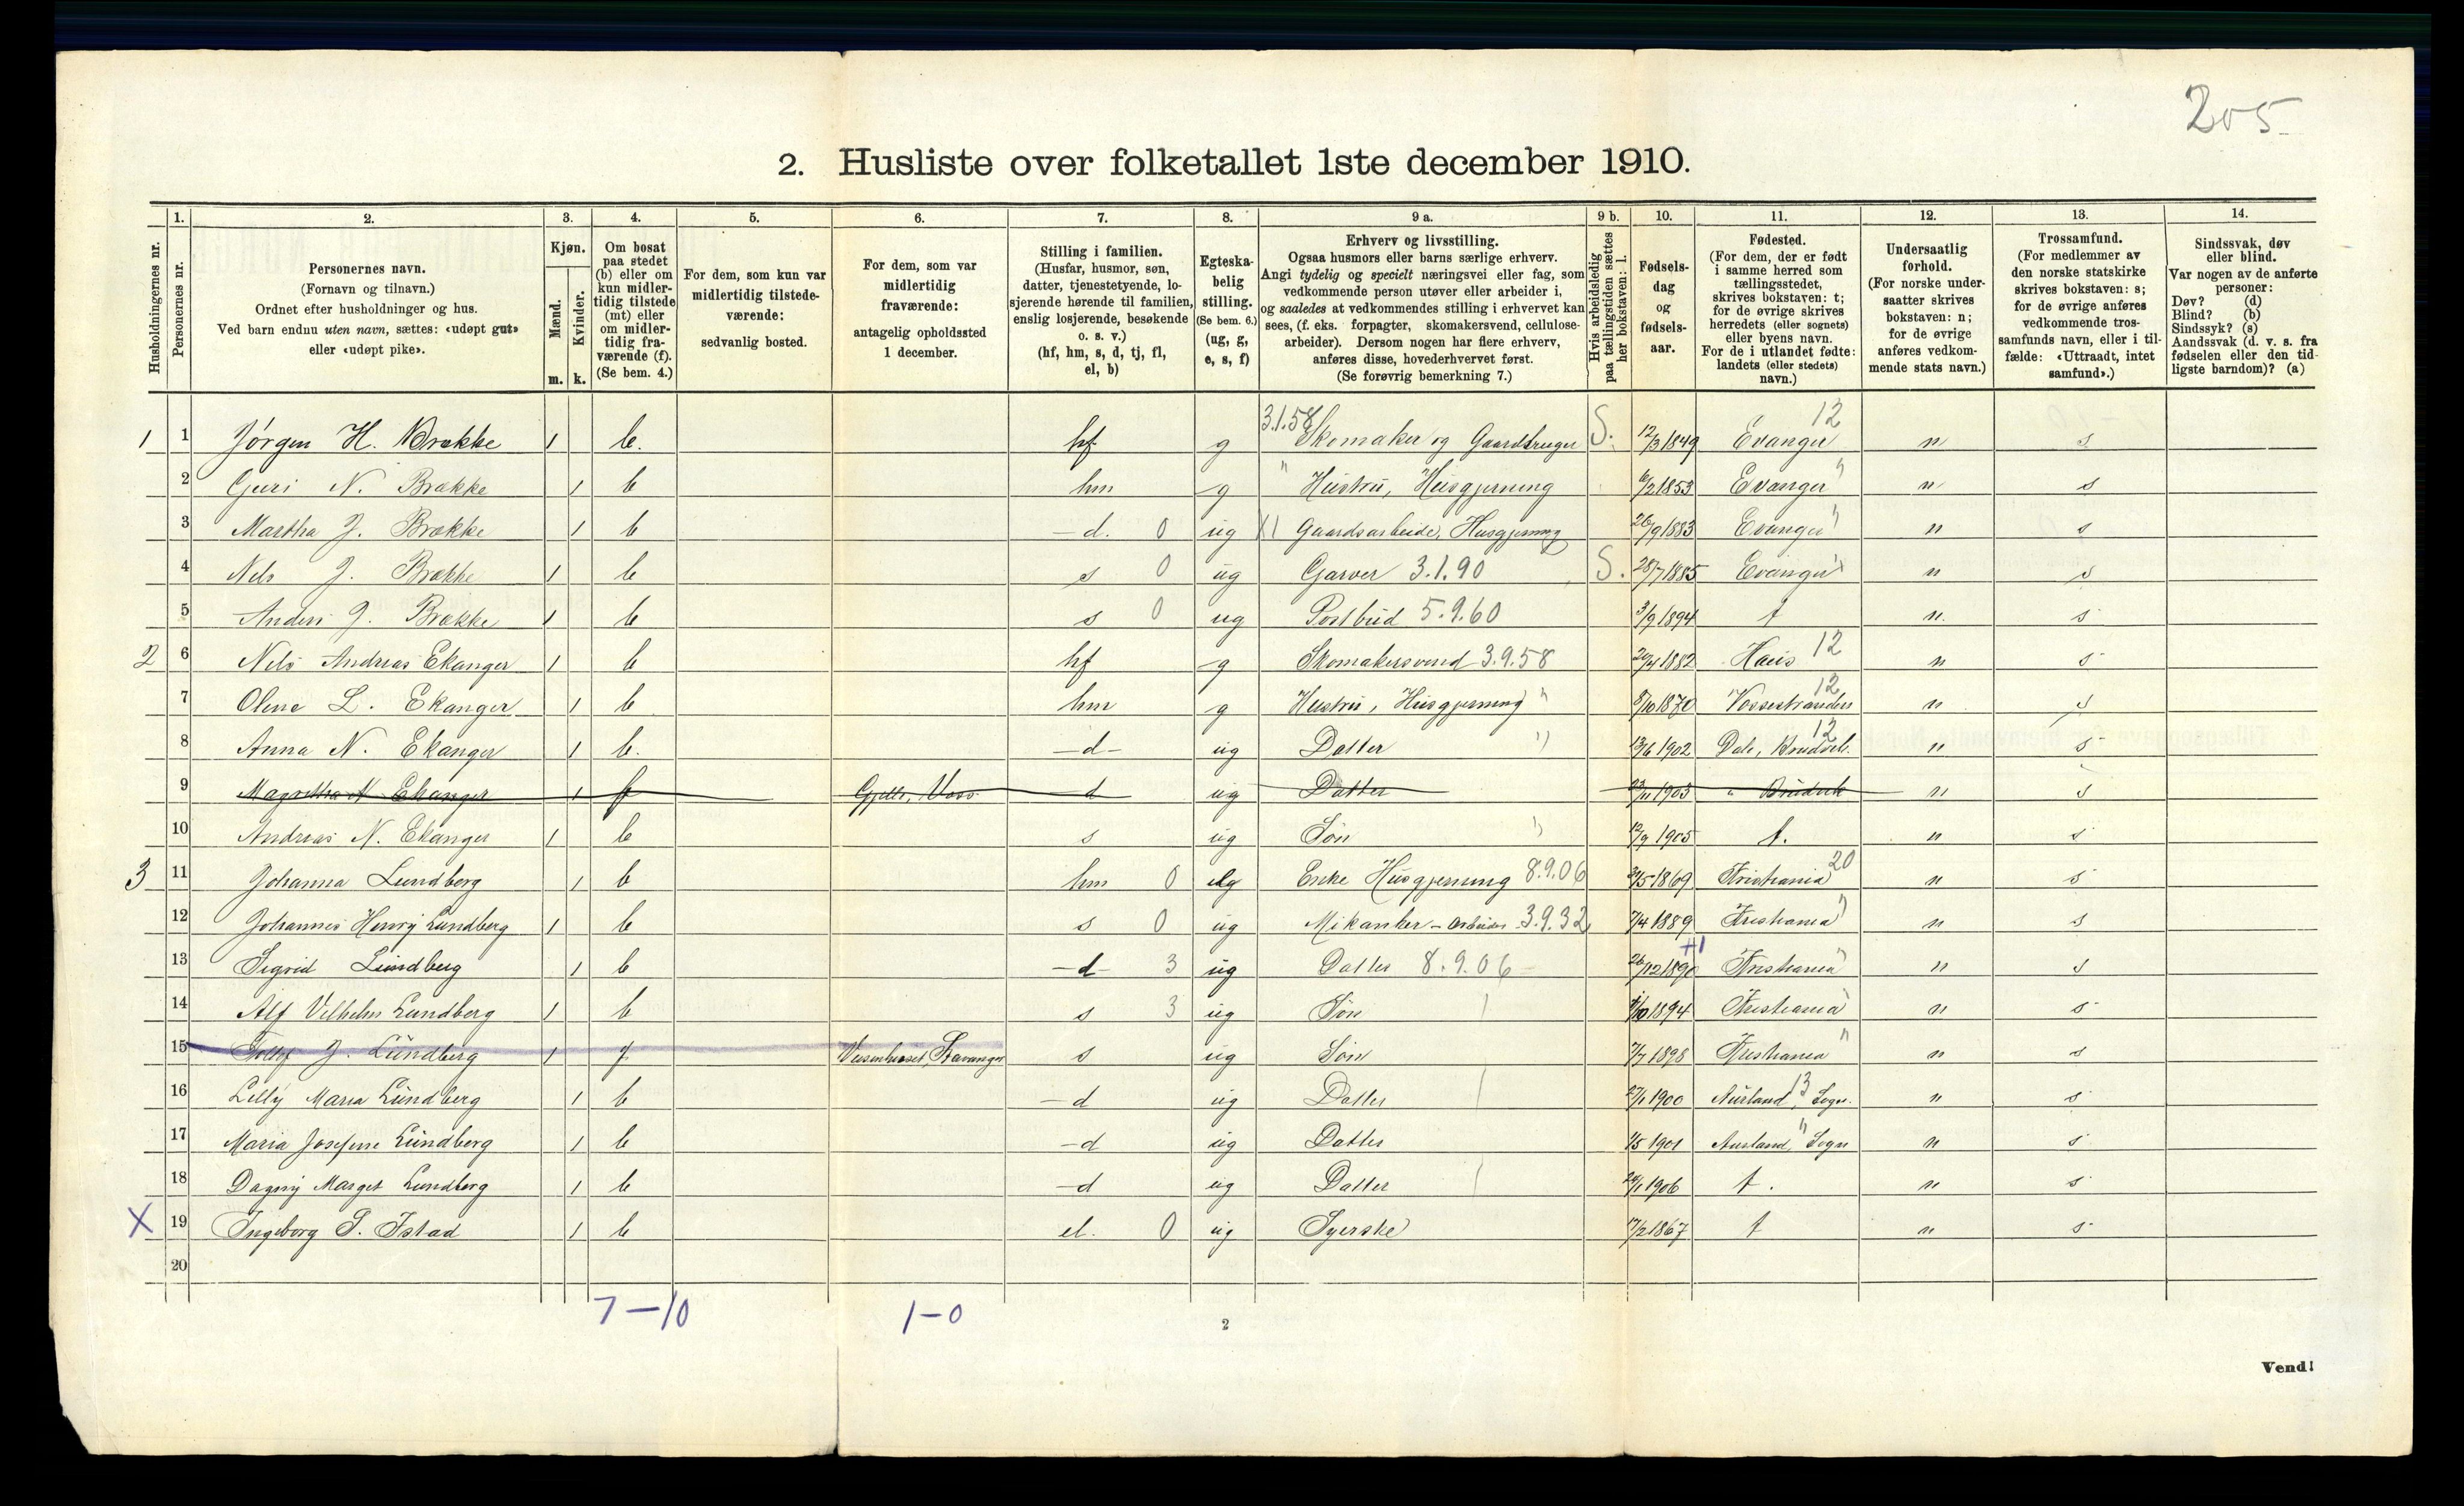 205
2. Husliste over folketallet 1ste december 1910.
Husholdningernes nr.
1. Personernes nr.
2. Personernes navn.
(Fornavn og tilnavn.)
Ordnet efter husholdninger og hus.
Ved barn endnu uten navn, sættes: «udøpt gut»
eller «udøpt pike».
3. Kjøn.
Mænd. Kvinder.
m. k.
4. Om bosat
paa stedet
(b) eller om
kun midler-
tidig tilstede
(mt) eller
om midler-
tidig fra-
værende (f).
(Se bem. 4.)
5. For dem, som kun var
midlertidig tilstede-
værende:
sedvanlig bosted.
6. For dem, som var
midlertidig
fraværende:
antagelig opholdssted
1 december.
7. Stilling i familien.
(Husfar, husmor, søn,
datter, tjenestetyende, lo-
sjerende hørende til familien,
enslig losjerende, besøkende
o. s. v.)
(hf, hm, s, d, tj, fl,
el, b)
8. Egteska-
belig
stilling.
(Se bem. 6.)
(ug, g,
e, s, f)
9 a. Erhverv og livsstilling.
Ogsaa husmors eller barns særlige erhverv.
Angi tydelig og specielt næringsvei eller fag, som
vedkommende person utøver eller arbeider i,
og saaledes at vedkommendes stilling i erhvervet kan
sees, (f. eks. forpagter, skomakersvend, cellulose-
arbeider). Dersom nogen har flere erhverv,
anføres disse, hovederhvervet først.
(Se forøvrig bemerkning 7.)
9 b. Hvis arbeidsledig
paa tællingstiden sættes
her bokstaven: l.
10. Fødsels-
dag
og
fødsels-
aar.
11. Fødested.
(For dem, der er født
i samme herred som
tællingsstedet,
skrives bokstaven: t;
for de øvrige skrives
herredets (eller sognets)
eller byens navn.
For de i utlandet fødte:
landets (eller stedets)
navn.)
12. Undersaatlig
forhold.
(For norske under-
saatter skrives
bokstaven: n;
for de øvrige
anføres vedkom-
mende stats navn.)
13. Trossamfund.
(For medlemmer av
den norske statskirke
skrives bokstaven: s;
for de øvrige anføres
vedkommende tros-
samfunds navn, eller i til-
fælde: «Uttraadt, intet
samfund».)
14. Sindssvak, døv
eller blind.
Var nogen av de anførte
personer:
Døv? (d)
Blind? (b)
Sindssyk? (s)
Aandssvak (d. v. s. fra
fødselen eller den tid-
ligste barndom)? (a)
1 1 Jørgen H. Brække 1 b. hf g 3.1.58 Skomaker og Gaardbruger S. 12/3 1849 Evanger 12 n s
2 Guri N. Brække 1 b hm g " Hustru, Husgjerning 6/2 1853 Evanger " n s
3 Martha J. Brække 1 b d. 0 ug Gaardsarbeide, Husgjerning 26/9 1883 Evanger " n s
4 Nels J. Brække 1 b s 0 ug Garver 3.1.90 S. 28/7 1885 Evanger " n s
5 Anders J. Brække 1 b s 0 ug Postbud 5.9.60 3/9 1894 t n. s
2 6 Nils Andreas Ekanger 1 b hf g Skomakersvend 3.9.58 1882 Haus 12 n s
7 Olene L. Ekanger 1 b hm g Hustru, Husgjerning " 8/10 1870 Vossestranden 12 n s
8 Anna N. Ekanger 1 b. d ug Datter " 13/6 1902 Dale, Brudvik. 12 n s
9 Magretha N Ekanger 1 f Voss d ug Datter 23/11 1903 " Brudvik n s
10 Andreas N. Ekanger 1 b s ug Søn " 12/9 1905 t. n s
3 11 Johanna Lundberg 1 b hm 0 Enke Husgjerning 8.9.06 1869 Kristiania 20 n s
12 Johannes Henry Lundberg 1 b s 0 ug Mikanker - Arbeider 3.9.32 7/4 1889 Kristiania " n s
13 Sigrid Lundberg 1 b d 3 ug Datter 8.9.06 26/12 1890 +1 Kristiania " n s
14 Alf Vilhelm Lundberg 1 b s 3 ug Søn 1894 Kristiania " n s
15 J. Lundberg 1 f Stavanger s ug Søn 7/7 1898 Kristiania " n s
16 Lilly Maria Lundberg 1 b d ug Datter 27/1 1900 Aurland, Sogn. 13 n s
17 Maria Josefine Lundberg 1 b d ug Datter 1/5 1901 Aurland, Sogn " n s
18 Dagny Marget Lundberg 1 b d ug Datter 1906 t. n s
X 19 Ingeborg S. Istad 1 b el. 0 ug Syerske 17/2 1867 t n s
20
7-10 1-0
2
Vend!